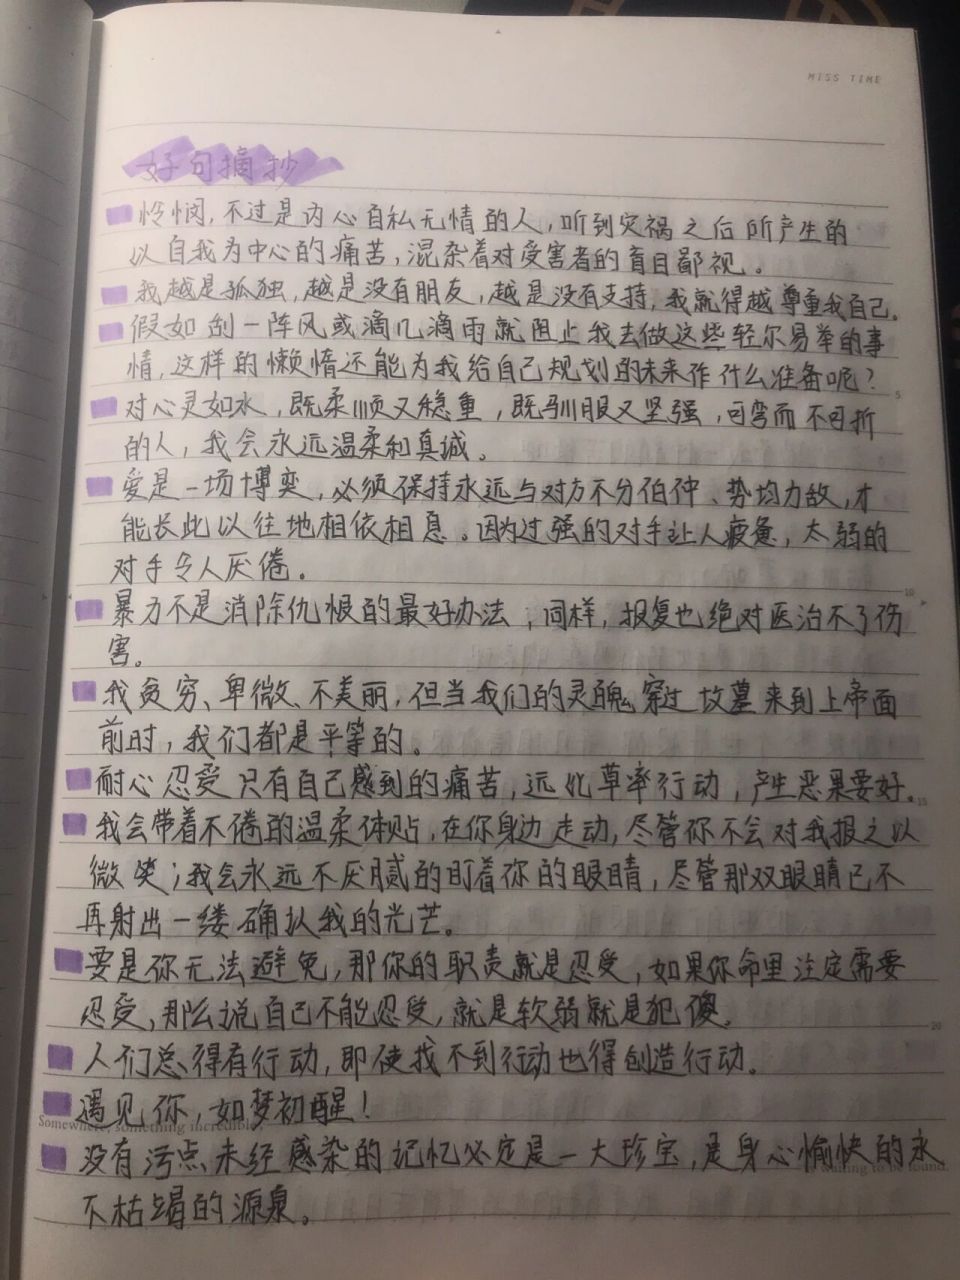 MISS TIME
好句摘抄
怜悯,不过是内心自私无情的人,听到灾祸之后所产生的
以自我为中心的痛苦,混杂着对受害者的盲目鄙视。
我越是孤独,越是没有朋友,越是没有支持,我就得越尊重我自己。
假如刮一阵风或滴几滴雨就阻止我去做这些轻尔易举的事
情,这样的懒惰还能为我给自己规划的未来作什么准备呢?
对心灵如水,既柔顺又稳重,既驯服又坚强,可弯而不可折
的人,我会永远温柔和真诚。
爱是一场博奕,必须保持永远与对方不分伯仲、势均力敌,才
能长此以往地相依相息。因为过强的对手让人疲惫,太弱的
对手令人厌倦。
暴力不是消除仇恨的最好办法;同样,报复也绝对医治不了伤
害。
我贫穷、卑微、不美丽,但当我们的灵魂穿过坟墓来到上帝面
前时,我们都是平等的。
耐心忍受只有自己感到的痛苦,远比草率行动,产生恶果要好。
我会带着不倦的温柔体贴,在你身边走动,尽管你不会对我报之以
微笑;我会永远不厌腻的盯着你的眼睛,尽管那双眼睛已不
再射出一缕确认我的光芒。
要是你无法避免,那你的职责就是忍受,如果你命里注定需要
忍受,那么说自己不能忍受,就是软弱就是犯傻。
人们总得有行动,即使找不到行动也得创造行动。
遇见你,如梦初醒!
Somewhere, something incredible
没有污点、未经感染的记忆必定是一大珍宝,是身心愉快的永
is waiting to be found.
不枯竭的源泉。
5
10
15
20